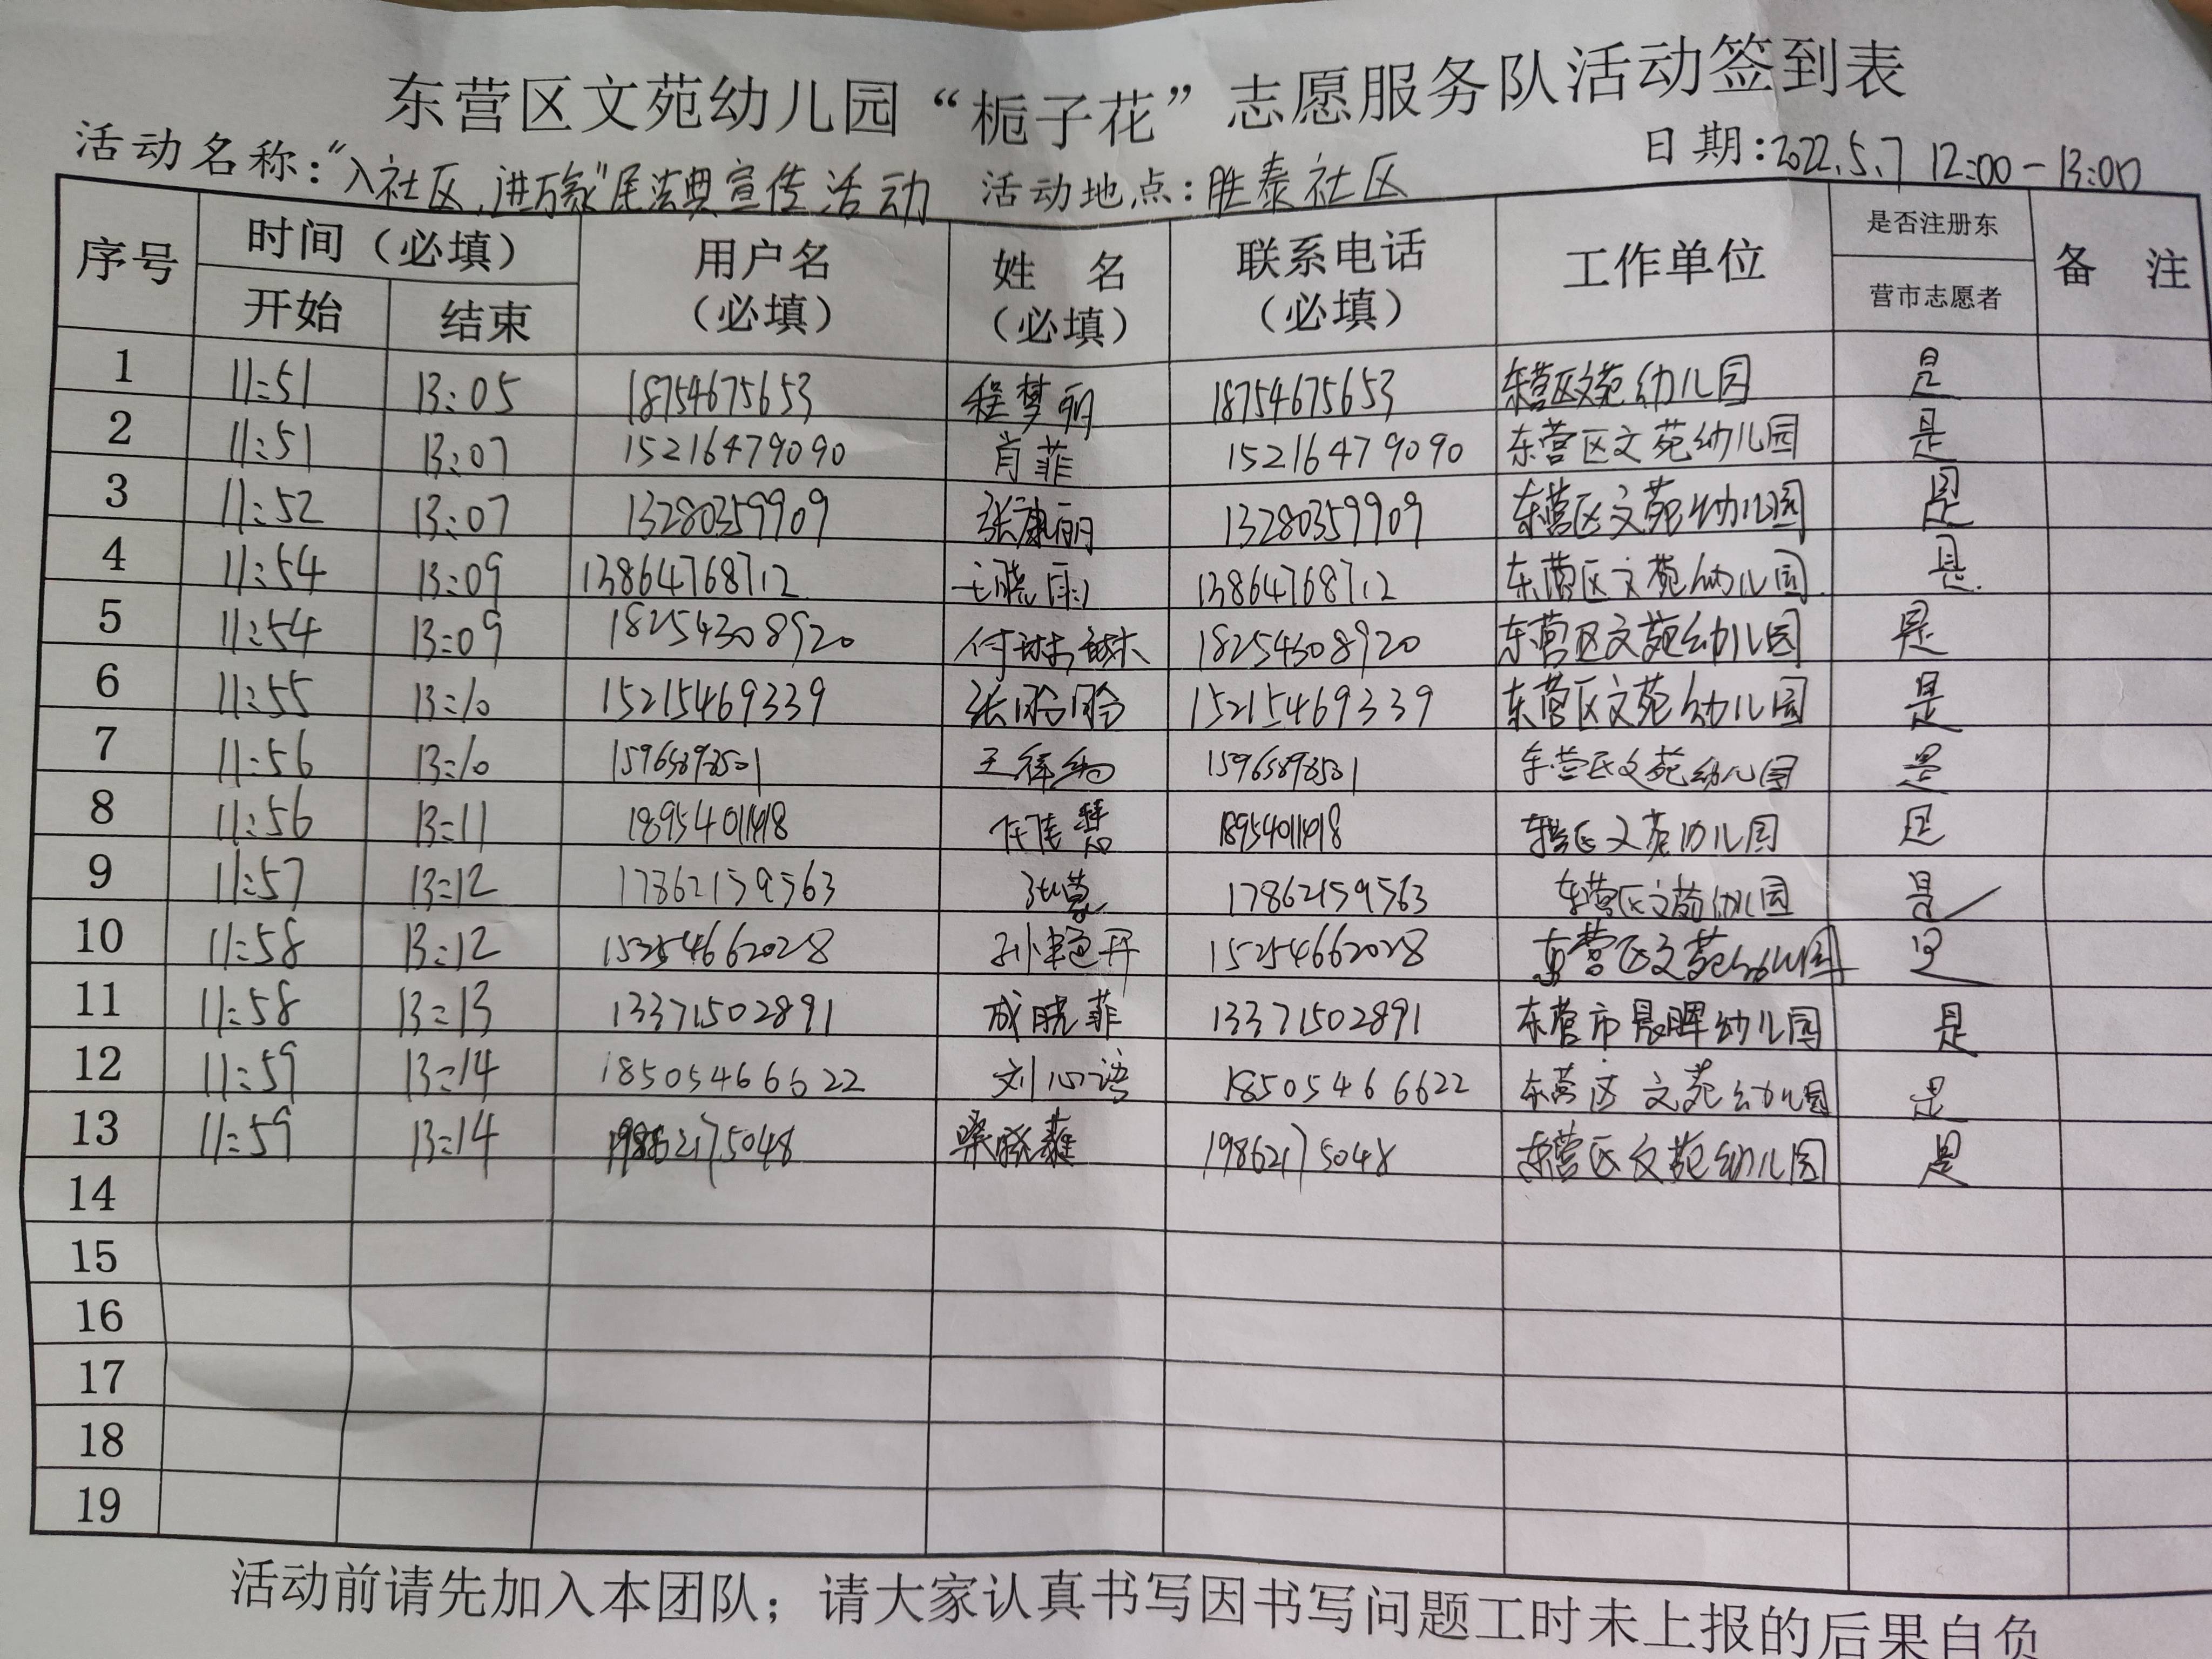 东营区文苑幼儿园“栀子花”志愿服务队活动签到表
活动名称：“入社区，进万家”民法典宣传活动 活动地点：胜泰社区 日期：2022.5.7 12:00-13:00
序号 时间（必填） 开始 结束 用户名（必填） 姓 名（必填） 联系电话（必填） 工作单位 是否注册东营市志愿者 备 注
1 11:51 13:05 18754675653 程梦丽 18754675653 东营区文苑幼儿园 是
2 11:51 13:07 15216479090 肖菲 15216479090 东营区文苑幼儿园 是
3 11:52 13:07 13280359909 张康丽 13280359909 东营区文苑幼儿园 是
4 11:54 13:09 13864768712 王晓雨 13864768712 东营区文苑幼儿园 是
5 11:54 13:09 18254308920 付琳琳 18254308920 东营区文苑幼儿园 是
6 11:55 13:10 15215469339 张 15215469339 东营区文苑幼儿园 是
7 11:56 13:10 王 东营区文苑幼儿园 是
8 11:56 13:11 18954011418 任佳慧 18954011418 东营区文苑幼儿园 是
9 11:57 13:12 17862159563 张 17862159563 东营区文苑幼儿园 是
10 11:58 13:12 15254662028 孙艳丹 15254662028 东营区文苑幼儿园 是
11 11:58 13:13 13371502891 成晓菲 13371502891 东营市晨晖幼儿园 是
12 11:59 13:14 18505466622 刘心语 18505466622 东营区文苑幼儿园 是
13 11:59 13:14 19862175048 19862175048 东营区文苑幼儿园 是
14
15
16
17
18
19
活动前请先加入本团队；请大家认真书写因书写问题工时未上报的后果自负